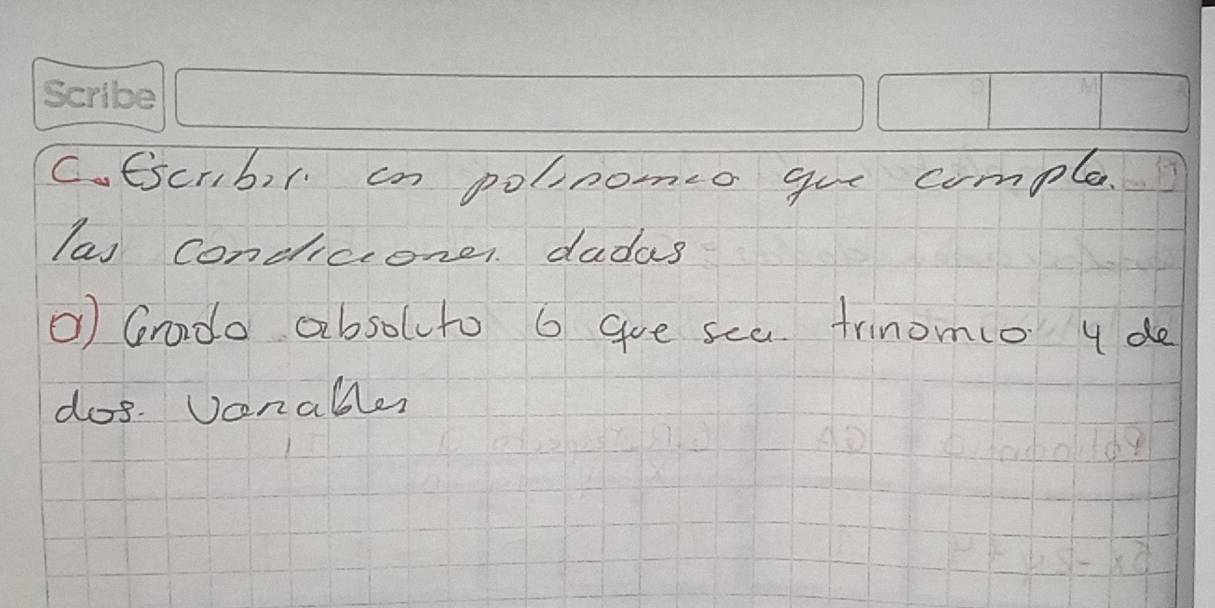 Scribe
C. Escribir un polinomio que cumpla
las condiciones dadas
a) Grado absoluto 6 que sea trinomio y de
dos variables